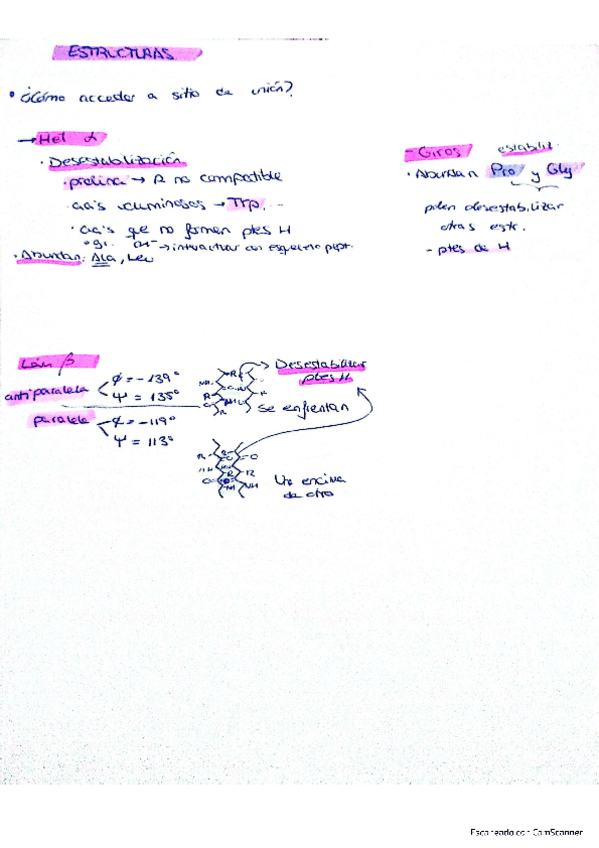 ESTRUCTURAS
• ¿Cómo acceder a sitio de unión?
→ Hel α
· Desestabilización
· prolina → R no compatible
· aa's voluminosos → Trp, ..
· aa's que no formen ptes H
OH⁻ → interactúar con esqueleto pept.
· Abundan: Ala, Leu
- Giros estabiliz.
· Abundan Pro y Gly
pden desestabilizar
otras estr.
- ptes de H
Lám β
antiparalela
ϕ = - 139°
Ψ = 135°
paralela
ϕ = -119°
Ψ = 113°
Desestabilizar
ptes H
Se enfrentan
Uno encima
de otro
Escaneado con CamScanner